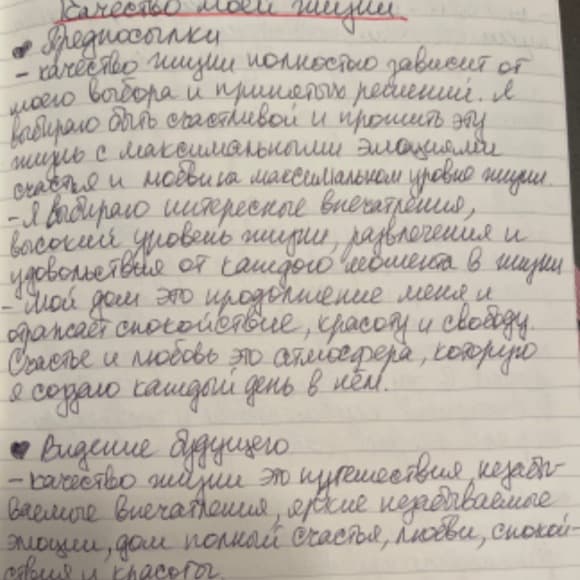 Качество моей жизни
Предпосылки
- качество жизни полностью зависит от
моего выбора и принятых решений. Я
выбираю быть счастливой и прожить эту
жизнь с максимальными эмоциями
счастья и любви на максимальном уровне жизни.
- Я выбираю интересные впечатления,
высокий уровень жизни, развлечения и
удовольствия от каждого момента в жизни
- Мой дом это продолжение меня и
отражает спокойствие, красоту и свободу.
Счастье и любовь это атмосфера, которую
я создаю каждый день в нём.
Видение будущего
- качество жизни это путешествия, незабы-
ваемые впечатления, яркие незабываемые
эмоции, дом полный счастья, любви, спокой-
ствия и красоты